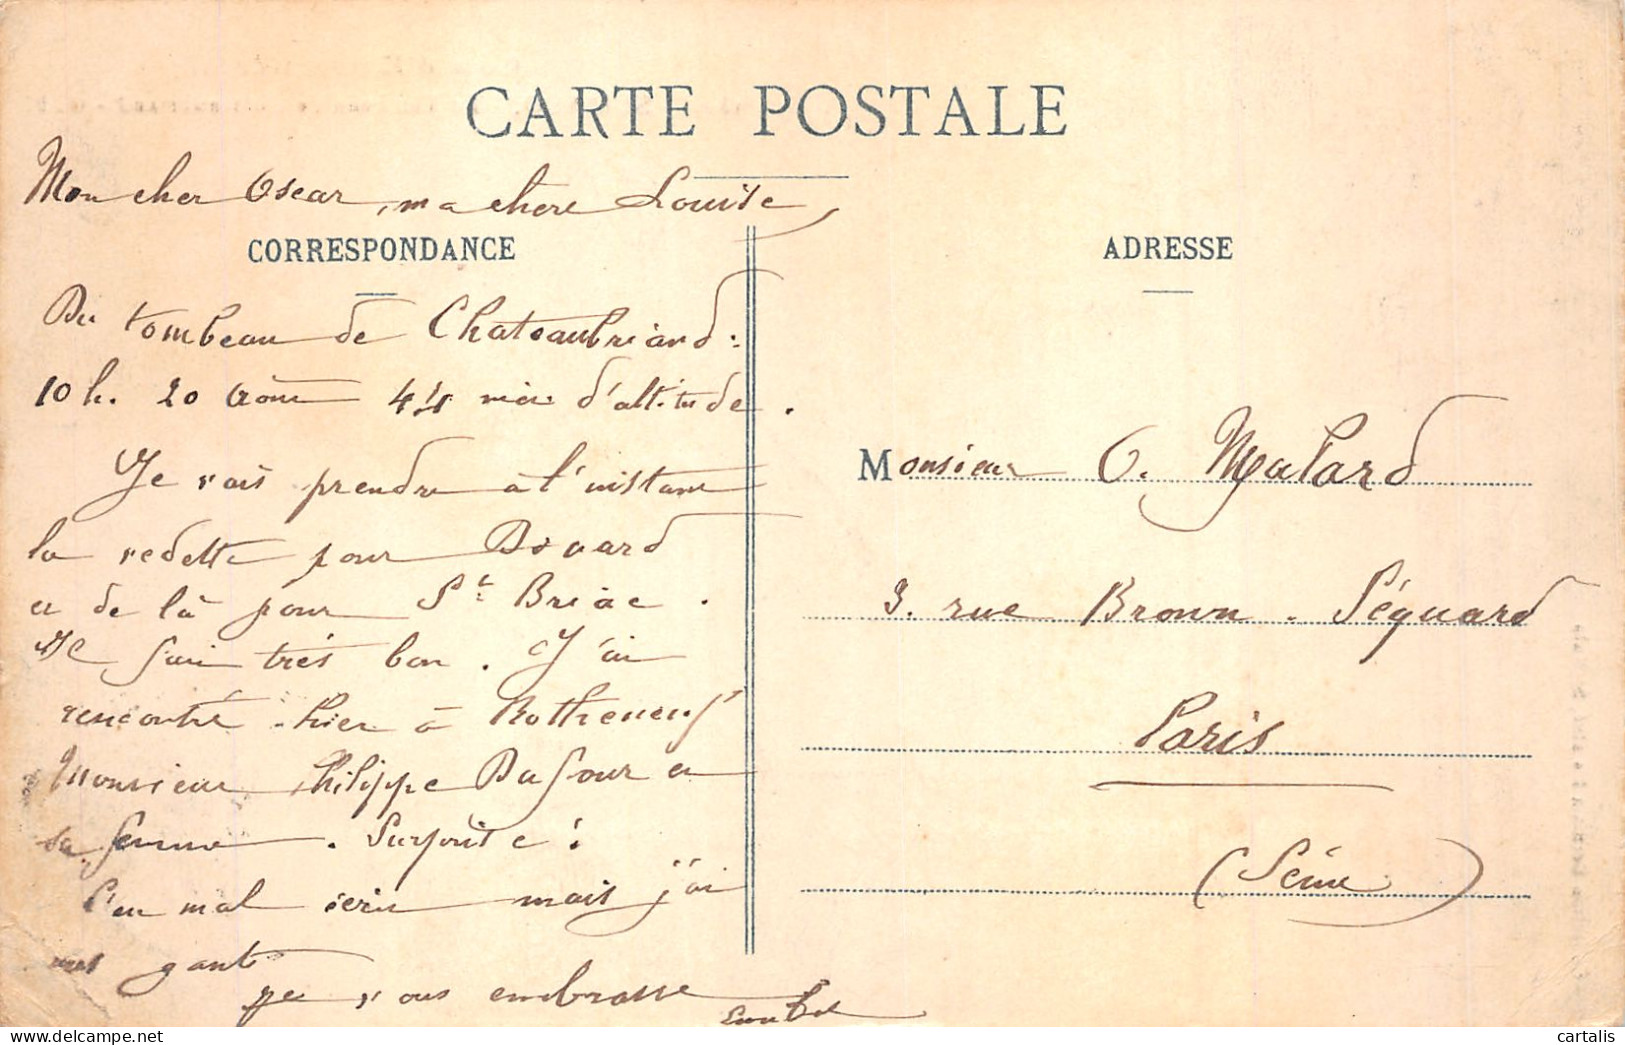 CARTE POSTALE
Mon cher Oscar, ma chère Louise,
CORRESPONDANCE
Du tombeau de Chateaubriand :
10 h. 20 Août 44 m. d'altitude.
Je vais prendre à l'instant
la vedette pour Dinard
et de là pour St Briac.
Il fait très bon. J'ai
rencontré hier à Rotheneuf
Monsieur Philippe Dufour et
sa femme. Surprise !
C'est mal écrit mais j'ai
mes gants
Je vous embrasse
ADRESSE
Monsieur O. Malard
3. rue Brown-Séquard
Paris
(Seine)
cartalis